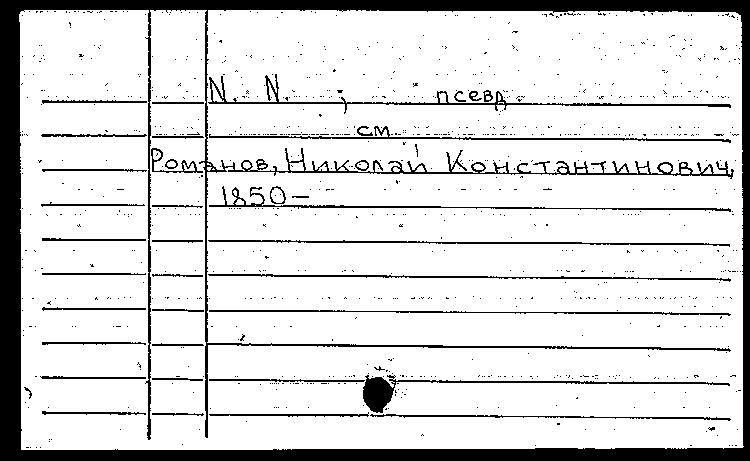 N. N. ; псевд.
см.
Романов, Николай Константинович,
1850–